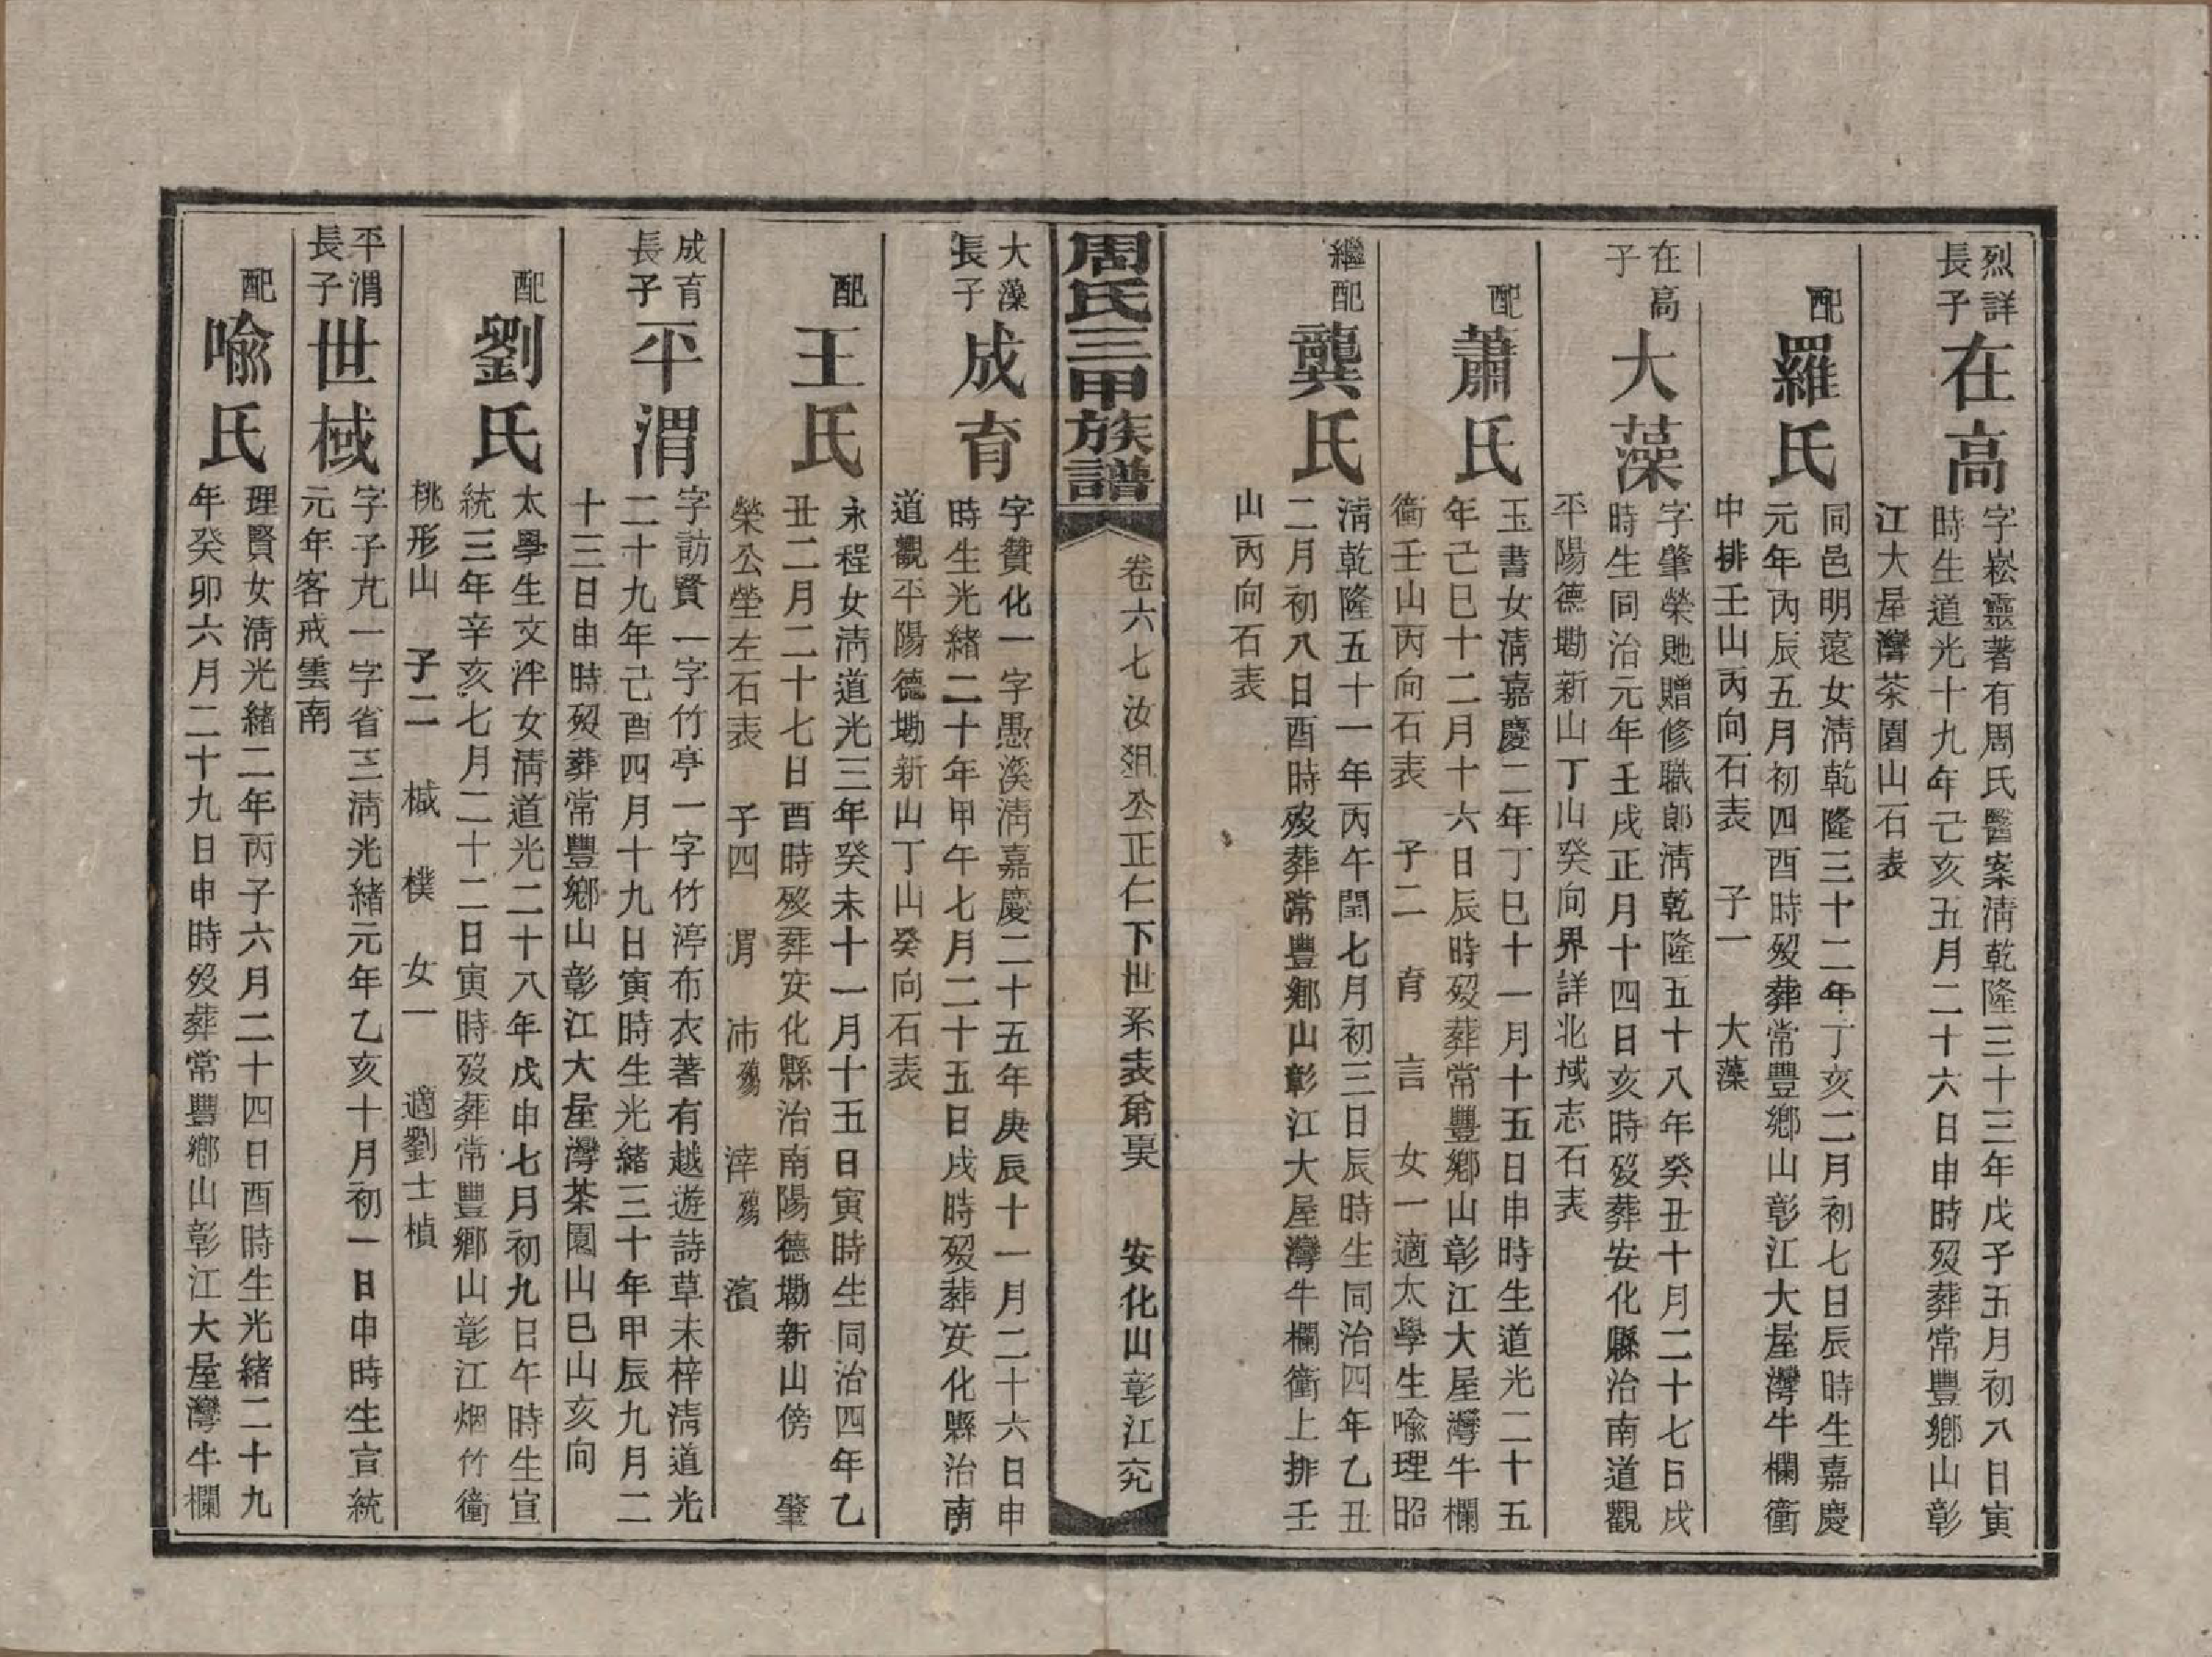 烈詳
長子
在高
字崧靈著有周氏醫案淸乾隆三十三年戊子五月初八日寅
時生道光十九年己亥五月二十六日申時歿葬常豐鄉山彰
江大屋灣茶園山石表
配
羅氏
同邑明遠女淸乾隆三十二年丁亥二月初七日辰時生嘉慶
元年丙辰五月初四酉時歿葬常豐鄉山彰江大屋灣牛欄衝
中排壬山丙向石表 子一 大藻
在高
子
大藻
字肇榮貤贈修職郎淸乾隆五十八年癸丑十月二十七日戌
時生同治元年壬戌正月十四日亥時歿葬安化縣治南道觀
平陽德墈新山丁山癸向界詳北域志石表
配
蕭氏
玉書女淸嘉慶二年丁巳十一月十五日申時生道光二十五
年己巳十二月十六日辰時歿葬常豐鄉山彰江大屋灣牛欄
衝壬山丙向石表 子二 育 言 女一適太學生喩理昭
繼配
龔氏
淸乾隆五十一年丙午閏七月初三日辰時生同治四年乙丑
二月初八日酉時歿葬常豐鄉山彰江大屋灣牛欄衝上排壬
山丙向石表
周氏三甲族譜
卷六七汝 公正仁下世系表 安化山彰江
大藻
長子
成育
字贊化一字愚溪淸嘉慶二十五年庚辰十一月二十六日申
時生光緒二十年甲午七月二十五日戌時歿葬安化縣治南
道觀平陽德墈新山丁山癸向石表
配
王氏
永程女淸道光三年癸未十一月十五日寅時生同治四年乙
丑二月二十七日酉時歿葬安化縣治南陽德墈新山傍 肇
榮公塋左石表 子四 渭 沛殤 滓殤 濱
成育
長子
平渭
字訪賢一字竹亭一字竹渟布衣著有越遊詩草未梓淸道光
二十九年己酉四月十九日寅時生光緒三十年甲辰九月二
十三日由時歿葬常豐鄉山彰江大屋灣茶園山巳山亥向
配
劉氏
太學生文泮女淸道光二十八年戊申七月初九日午時生宣
統三年辛亥七月二十二日寅時歿葬常豐鄉山彰江烟竹衝
桃形山 子二 棫 樸 女一 適劉士楨
平渭
長子
世棫
字子芃一字省三淸光緒元年乙亥十月初一日申時生宣統
元年客戒雲南
配
喩氏
理賢女淸光緒二年丙子六月二十四日酉時生光緒二十九
年癸卯六月二十九日申時歿葬常豐鄉山彰江大屋灣牛欄